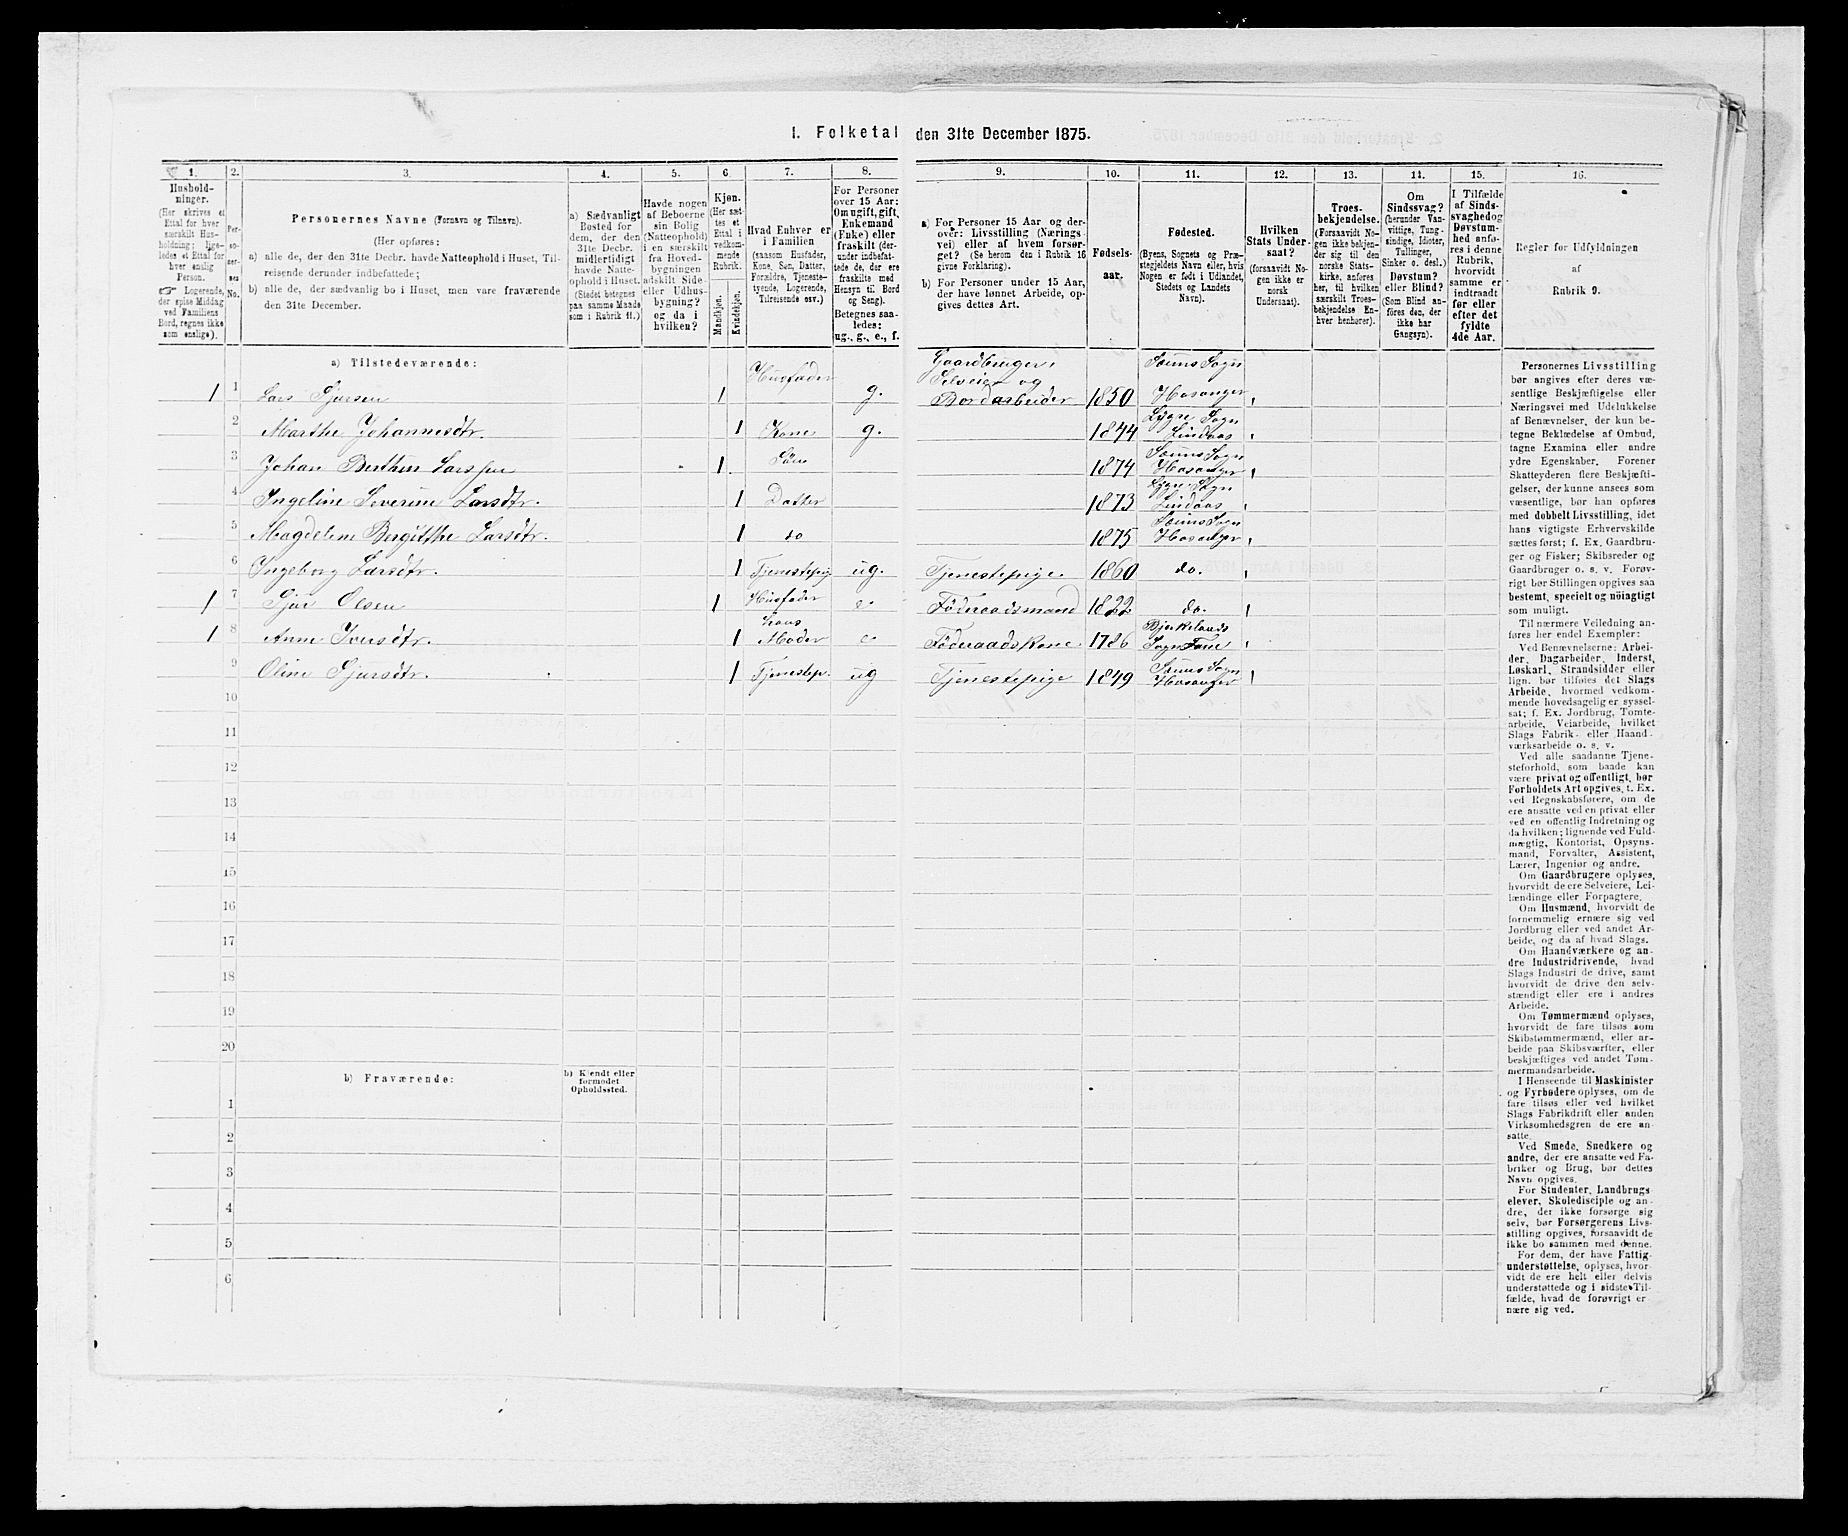 1. Folketal den 31te December 1875.
1.
2.
3.
4.
5.
6.
7.
8.
9.
10.
11.
12.
13.
14.
15.
16.
Hushold-
ninger.
(Her skrives et
Ettal for hver
særskilt Hus-
holdning; lige-
ledes et Ettal for
hver enslig
Person.
☞ Logerende,
der spise Middag
ved Familiens
Bord, regnes ikke
som enslige).
Per-
so-
ner-
nes
No.
Personernes Navne (Fornavn og Tilnavn).
(Her opføres:
a) alle de, der den 31te Decbr. havde Natteophold i Huset, Til-
reisende derunder indbefattede;
b) alle de, der sædvanlig bo i Huset, men vare fraværende
den 31te December.
a) Sædvanligt
Bosted for
dem, der den
31te Decbr.
midlertidigt
havde Natte-
ophold i Huset.
(Stedet betegnes
paa samme Maade
som i Rubrik 11.)
Havde nogen
af Beboerne
sin Bolig
(Natteophold)
i en særskilt
fra Hoved-
bygningen
adskilt Side-
eller Udhus-
bygning?
og da i
hvilken?
Kjøn.
(Her sæt-
tes et
Ettal i
vedkom-
mende
Rubrik.
Mandkjøn.
Kvindekjøn.
Hvad Enhver er
i Familien
(saasom Husfader,
Kone, Søn, Datter,
Forældre, Tjeneste-
tyende, Logerende,
Tilreisende osv.)
For Personer
over 15 Aar:
Om ugift, gift,
Enkemand
(Enke) eller
fraskilt (der-
under indbefat-
tede de, der ere
fraskilte med
Hensyn til Bord
og Seng).
Betegnes saa-
ledes:
ug., g., e., f.
a) For Personer 15 Aar og der-
over: Livsstilling (Nærings-
vei) eller af hvem forsør-
get? (Se herom den i Rubrik 16
givne Forklaring).
b) For Personer under 15 Aar,
der have lønnet Arbeide, op-
gives dettes Art.
Fødsels-
aar.
Fødested.
(Byens, Sognets og Præ-
stegjeldets Navn eller, hvis
Nogen er født i Udlandet,
Stedets og Landets
Navn).
Hvilken
Stats Under-
saat?
(forsaavidt No-
gen ikke er
norsk
Undersaat).
Troes-
bekjendelse.
(Forsaavidt No-
gen ikke bekjen-
der sig til den
norske Stats-
kirke, anføres
her, til hvilken
særskilt Troes-
bekjendelse En-
hver henhører).
Om
Sindssvag?
(herunder Van-
vittige, Tung-
sindige, Idioter,
Tullinger,
Sinker o. desl.)
Døvstum?
eller Blind?
(Som Blind an-
føres den, der
ikke har
Gangsyn).
I Tilfælde
af Sinds-
svaghed og
Døvstum-
hed anfø-
res i denne
Rubrik,
hvorvidt
samme er
indtraadt
før eller
efter det
fyldte
4de Aar.
Regler for Udfyldningen
af
Rubrik 9.
a) Tilstedeværende:
1 1 Lars Gjursen 1 Husfader g. Gaardbruger, Selveier og Bordarbeider 1850 Sæims Sogn Hosanger
2 Marthe Johannesdtr. 1 Kone g. 1844 Lygre Sogn Lindaas
3 Johan Berthin Larssen 1 Søn 1874 Sæims Sogn Hosanger
4 Ingeline Severine Larsdtr. 1 Datter 1873 Lygre Sogn Lindaas
5 Magdeline Bergitthe Larsdtr. 1 do 1875 Sæims Sogn Hosanger
6 Ingeborg Larsdtr. 1 Tjenestepig ug. Tjenestepige 1860 do.
1 7 Gjur Olsen 1 Husfader e. Föderaadsmand 1822 do.
1 8 Anne Iversdtr. 1 Hans Moder e Föderaadskone 1786 Bjerkelands Sogn Fane
9 Oline Gjursdtr. 1 Tjenestep. ug Tjenestepige 1849 Sæims Sogn Hosanger
10
11
12
13
14
15
16
17
18
19
20
b) Fraværende:
b) Kjendt eller
formodet
Opholdssted.
1
2
3
4
5
6
Personernes Livsstilling
bør angives efter deres væ-
sentlige Beskjæftigelse eller
Næringsvei med Udelukkelse
af Benævnelser, der kun be-
tegne Beklædelse af Ombud,
tagne Examina eller andre
ydre Egenskaber. Forener
Skatteyderen flere Beskjæfti-
gelser, der kunne ansees som
væsentlige, bør han opføres
med dobbelt Livsstilling, idet
hans vigtigste Erhvervskilde
sættes først; f. Ex. Gaardbru-
ger og Fisker; Skibsreder og
Gaardbruger o. s. v. Forøv-
rigt bør Stillingen opgives saa
bestemt, specielt og nöiagtigt
som muligt.
Til nærmere Veiledning an-
føres her endel Exempler:
Ved Benævnelserne: Arbei-
der, Dagarbeider, Inderst,
Løskarl, Strandsidder eller
lign. bør tilføies det Slags
Arbeide, hvormed vedkom-
mende hovedsagelig er syssel-
sat; f. Ex. Jordbrug, Tomte-
arbeide, Veiarbeide, hvilket
Slags Fabrik- eller Haand-
værksarbeide o. s. v.
Ved alle saadanne Tjene-
steforhold, som baade kan
være privat og offentligt, bør
Forholdets Art opgives, t. Ex.
ved Regnskabsførere, om de
ere ansatte ved en privat eller
ved en offentlig Indretning og
da hvilken; lignende ved Fuld-
mægtig, Kontorist, Opsyns-
mand, Forvalter, Assistent,
Lærer, Ingeniør og andre.
Om Gaardbrugere oplyses,
hvorvidt de ere Selveiere, Lei-
lændinge eller Forpagtere.
Om Husmænd, hvorvidt de
fornemmelig ernære sig ved
Jordbrug eller ved andet Ar-
beide, og da af hvad Slags.
Om Haandværkere og an-
dre Industridrivende, hvad
Slags Industri de drive, samt
hvorvidt de drive den selv-
stændigt eller ere i andres
Arbeide.
Om Tømmermænd oplyses,
hvorvidt de fare tilsøs som
Skibstømmermænd, eller ar-
beide paa Skibsværfter, eller
beskjæftiges ved andet Tøm-
mermandsarbeide.
I Henseende til Maskinister
og Fyrbødere oplyses, om de
fare tilsøs eller ved hvilket
Slags Fabrikdrift eller anden
Virksomhedsgren de ere an-
satte.
Ved Smede, Snedkere og
andre, der ere ansatte ved Fa-
briker og Brug, bør dettes
Navn opgives.
For Studenter, Landbrugs-
elever, Skoledisciple og an-
dre, der ikke forsørge sig
selv, bør Forsørgerens Livs-
stilling opgives, forsaavidt de
ikke bo sammen med denne.
For dem, der have Fattig-
understøttelse, oplyses, hvor-
vidt de ere helt eller delvis
understøttede og i sidste Til-
fælde, hvad de forøvrigt er-
nære sig ved.